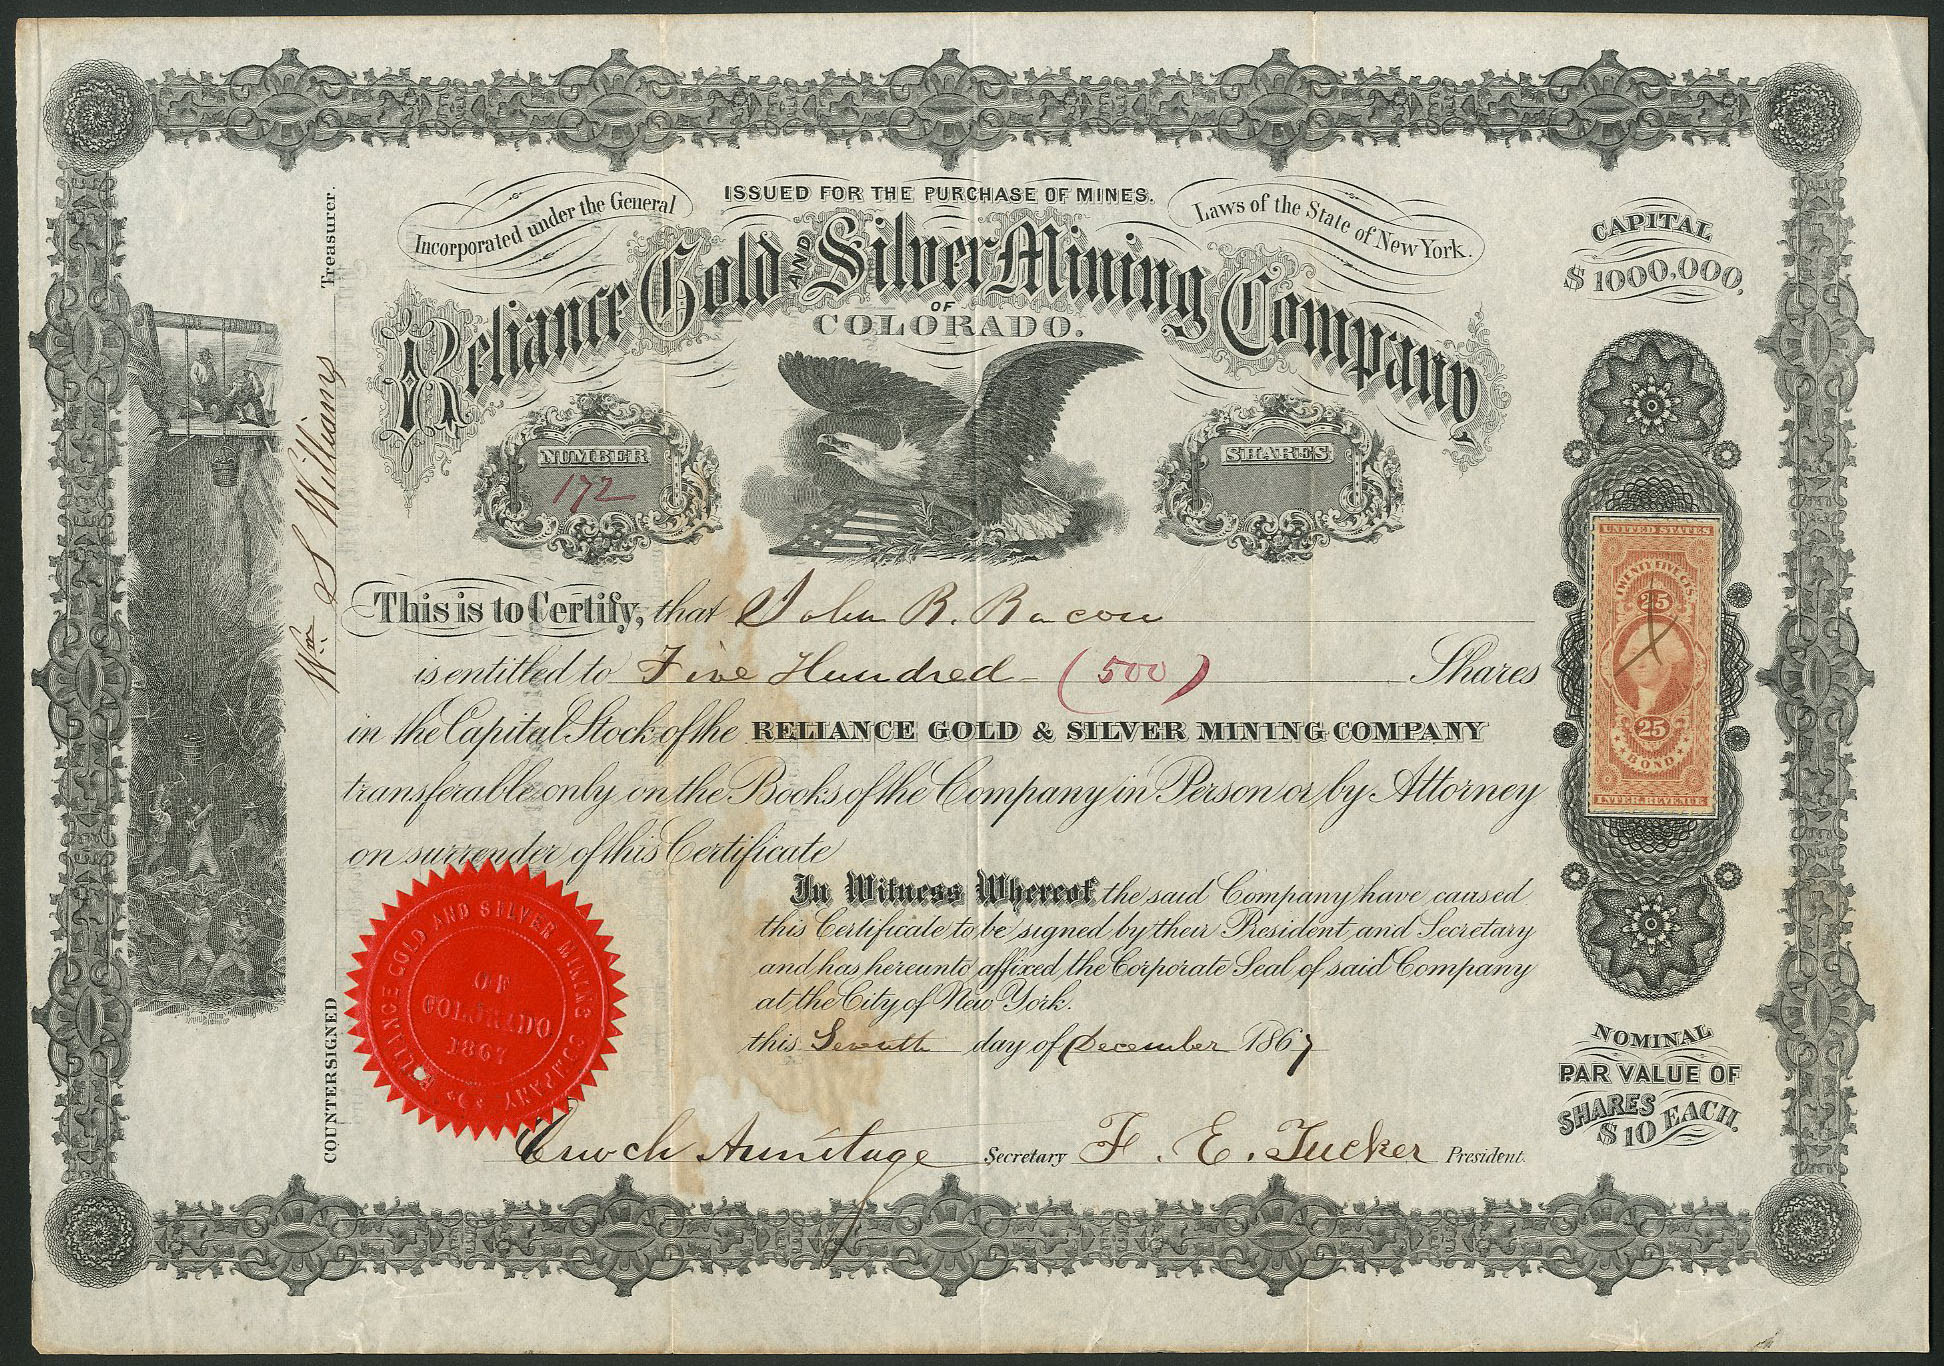 ISSUED FOR THE PURCHASE OF MINES.
Incorporated under the General
Laws of the State of New York.
Reliance Gold AND Silver Mining Company
OF
COLORADO.
CAPITAL
$1000,000,
NUMBER
172
SHARES
This is to Certify, that John R. Bacon
is entitled to Five Hundred (500) Shares
in the Capital Stock of the RELIANCE GOLD & SILVER MINING COMPANY
transferable only on the Books of the Company in Person or by Attorney
on surrender of this Certificate
In Witness Whereof the said Company have caused
this Certificate to be signed by their President and Secretary
and has hereunto affixed the Corporate Seal of said Company
at the City of New York.
this Seventh day of December 1867
Enoch Armitage Secretary F. E. Tucker President.
COUNTERSIGNED
Wm S Williams Treasurer.
RELIANCE GOLD AND SILVER MINING COMPANY
OF
COLORADO
1867
UNITED STATES
TWENTY FIVE CTS.
25
25
BOND
INTER. REVENUE
NOMINAL
PAR VALUE OF
SHARES
$10 EACH.